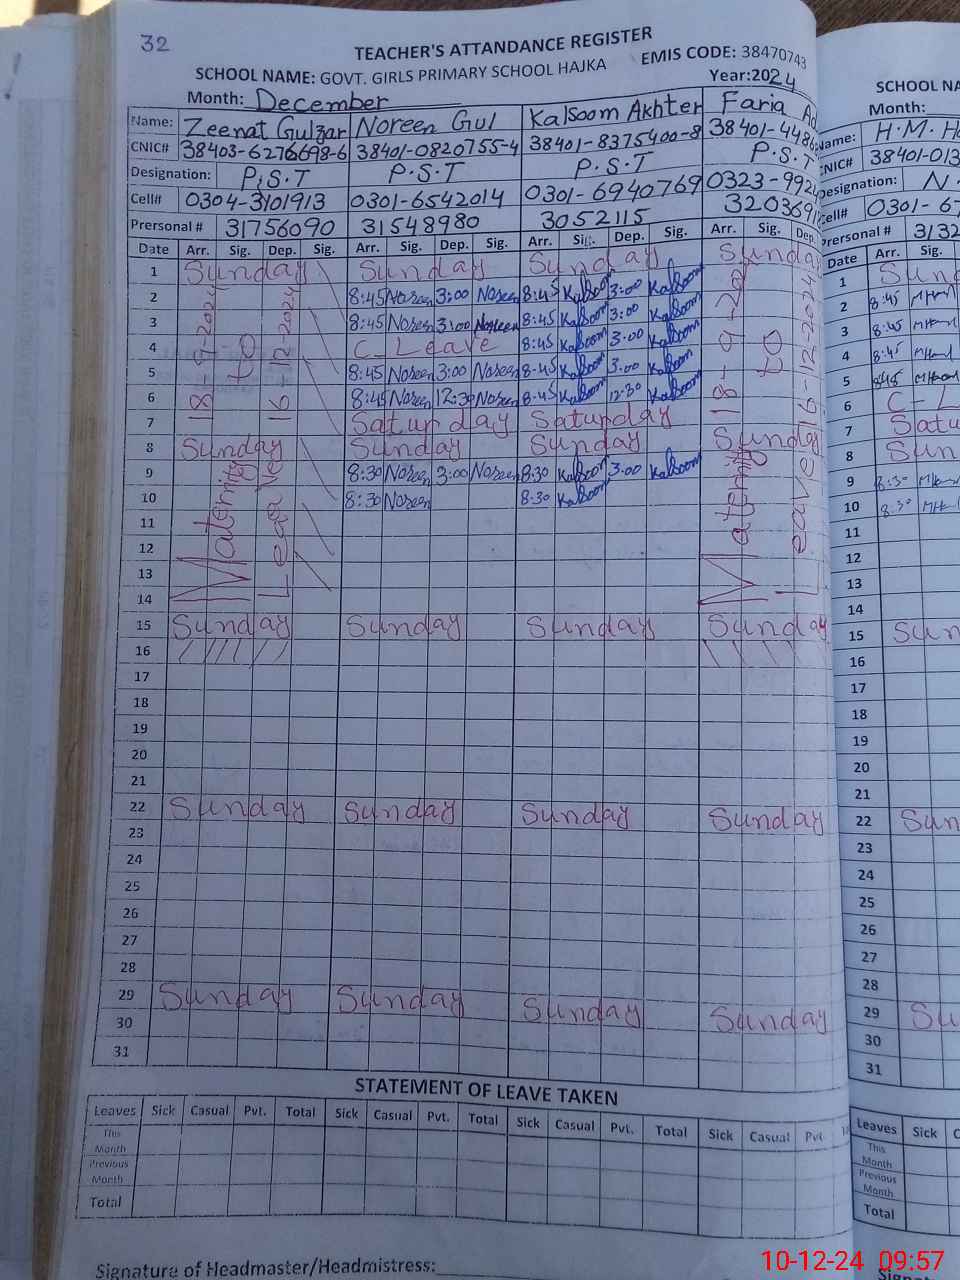 32
TEACHER'S ATTANDANCE REGISTER
SCHOOL NAME: GOVT. GIRLS PRIMARY SCHOOL HAJKA EMIS CODE: 38470743
Month: December Year:2024
Name: Zeenat Gulzar Noreen Gul Kalsoom Akhter Faria
CNIC# 38403-6276698-6 38401-0820755-4 38401-8375400-8 38401-4486
Designation: P.S.T P.S.T P.S.T P.S.T
Cell# 0304-3101913 0301-6542014 0301-6940769 0323-992
Prersonal # 31756090 31548980 3052115 3203691
Date Arr. Sig. Dep. Sig. Arr. Sig. Dep. Sig. Arr. Sig. Dep. Sig. Arr. Sig. Dep.
1 Sunday Sunday Sunday Sunday
2 8:45 Noreen 3:00 Noreen 8:45 Kalsoom 3:00 Kalsoom
3 8:45 Noreen 3:00 Noreen 8:45 Kalsoom 3:00 Kalsoom
4 C-Leave 8:45 Kalsoom 3:00 Kalsoom
5 8:45 Noreen 3:00 Noreen 8:45 Kalsoom 3:00 Kalsoom
6 8:45 Noreen 12:30 Noreen 8:45 Kalsoom 12:30 Kalsoom
7 Saturday Saturday
8 Sunday Sunday Sunday Sunday
9 8:30 Noreen 3:00 Noreen 8:30 Kalsoom 3:00 Kalsoom
10 8:30 Noreen 8:30 Kalsoom
11
12
13
14
Maternity 18-9-2024
Leave 16-12-2024
to
Maternity 18-9-202
Leave 16-12-2024
to
15 Sunday Sunday Sunday Sunday
16
17
18
19
20
21
22 Sunday Sunday Sunday Sunday
23
24
25
26
27
28
29 Sunday Sunday Sunday Sunday
30
31
STATEMENT OF LEAVE TAKEN
Leaves Sick Casual Pvt. Total Sick Casual Pvt. Total Sick Casual Pvt. Total Sick Casual Pvt
This Month
Previous Month
Total
Signature of Headmaster/Headmistress:
SCHOOL NA
Month:
Name: H.M.
CNIC# 38401-013
Designation: N.
Cell# 0301-67
Prersonal # 3132
Date Arr. Sig.
1 Sund
2 8:45
3 8:45
4 8:45
5 8:45
6 C-L
7 Satu
8 Sun
9 8:30
10 8:30
11
12
13
14
15 Sun
16
17
18
19
20
21
22 Sun
23
24
25
26
27
28
29 Su
30
31
Leaves Sick C
This Month
Previous Month
Total
10-12-24 09:57